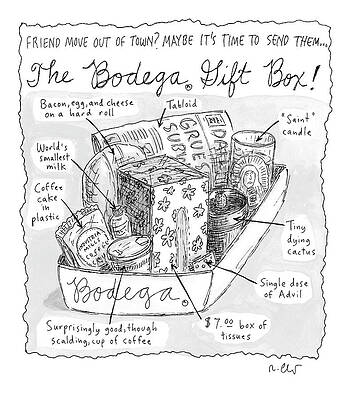 FRIEND MOVE OUT OF TOWN? MAYBE IT'S TIME TO SEND THEM...
The Bodega® Gift Box!
Bacon, egg, and cheese
on a hard roll
Tabloid
"Saint"
candle
World's
smallest
milk
Coffee
cake
in
plastic
DAI
GRUE
SUB
Tiny
dying
cactus
Bodega®
Single dose
of Advil
Surprisingly good, though
scalding, cup of coffee
$7.00 box of
tissues
r. chr